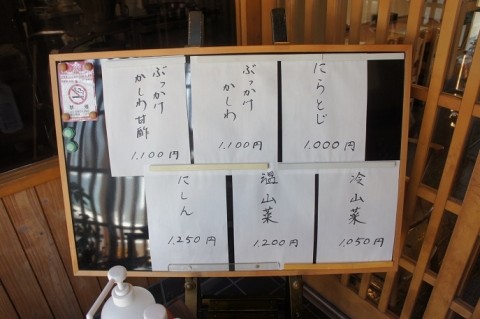 にらとじ
1,000円
ぶっかけ
かしわ
1,100円
ぶっかけ
かしわ甘酢
1,100円
冷山菜
1,050円
温山菜
1,200円
にしん
1,250円